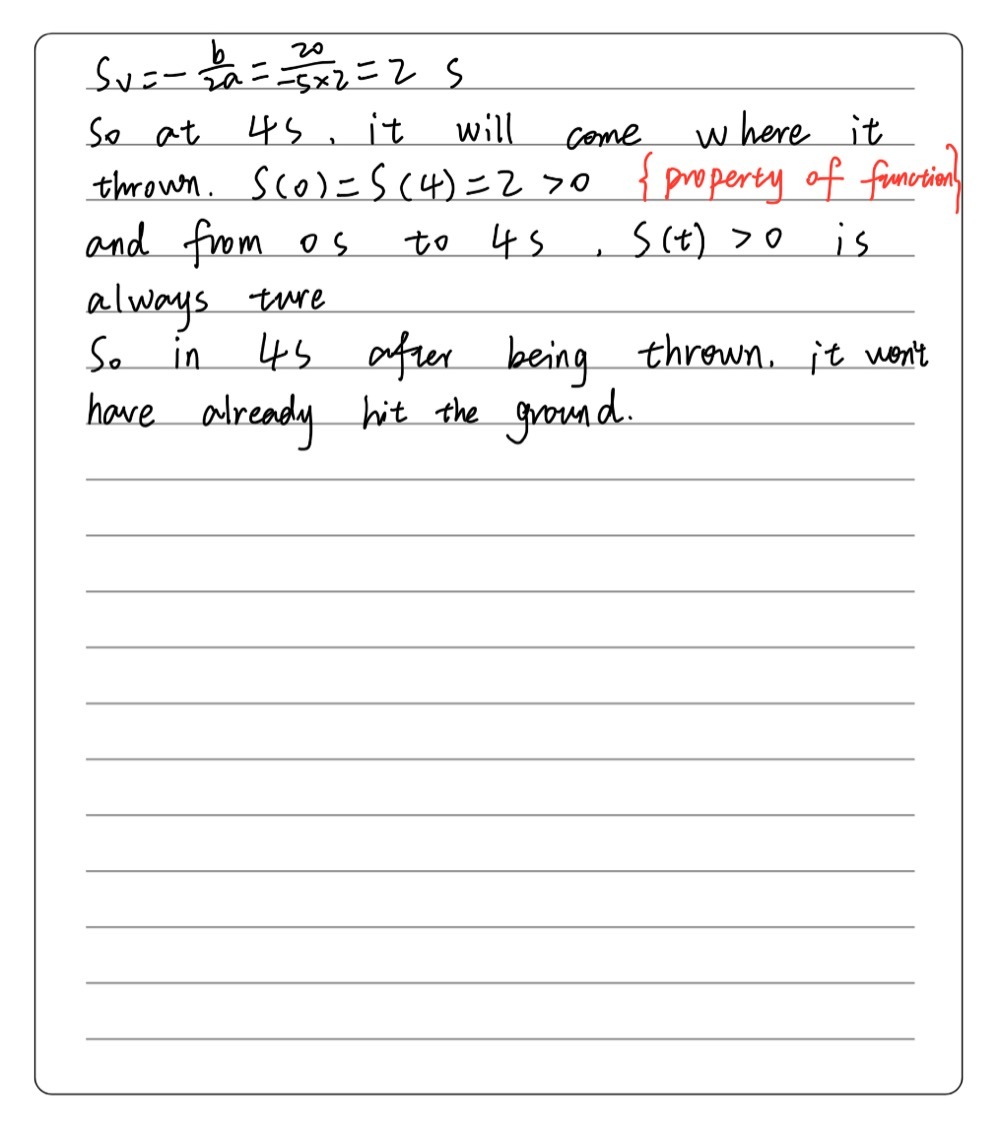 Sv = - b/2a = 20/-5×2 = 2 s
So at 4s, it will come where it
thrown. S(0) = S(4) = 2 > 0 {property of function}
and from 0s to 4s, S(t) > 0 is
always ture
So in 4s after being thrown. it won't
have already hit the ground.